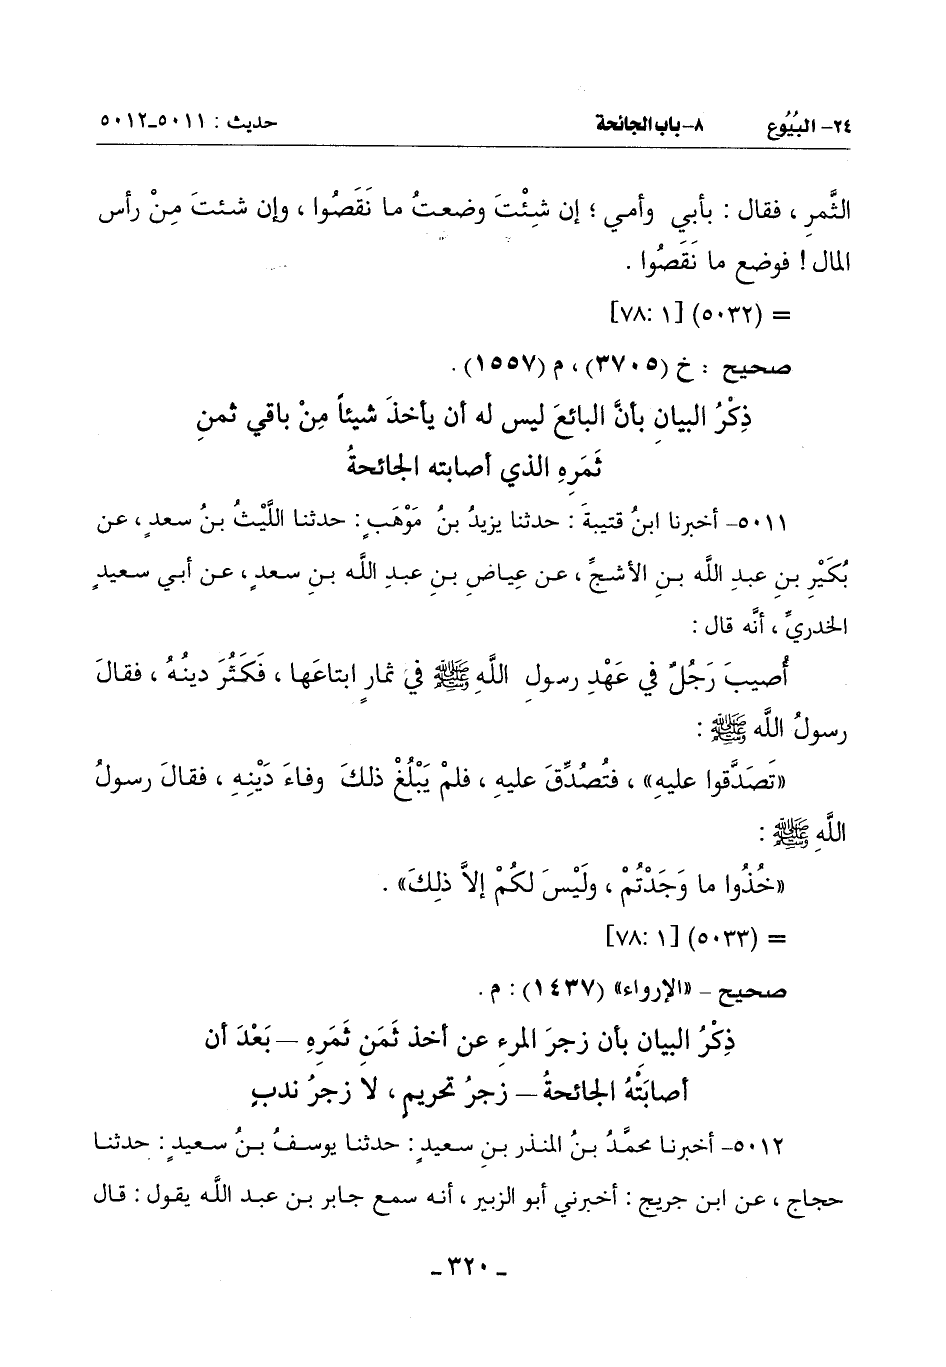 ٢٤- البُيُوع ٨- باب الجائحة حديث : ٥٠١١-٥٠١٢
الثَّمرِ ، فقال : بأبي وأمي ؛ إن شئِْتَ وضعتُ ما نَقَصُوا ، وإن شئتَ مِنْ رأس
المال ! فوضع ما نَقَصُوا .
= (٥٠٣٢) [١ :٧٨]
صحيح : خ (٣٧٠٥) ، م (١٥٥٧) .
ذِكْرُ البيانِ بأنَّ البائعَ ليس له أن يأخذَ شيئاً مِنْ باقي ثمنِ
ثَمَرِهِ الذي أصابته الجائحةُ
٥٠١١- أخبرنا ابنُ قتيبةَ : حدثنا يزيدُ بنُ مَوْهَبٍ : حدثنا اللَّيْثُ بنُ سعدٍ ، عن
بُكَيْرِ بنِ عبدِ اللَّه بنِ الأشجِّ ، عن عِياضِ بنِ عبدِ اللَّه بنِ سعدٍ ، عن أبي سعيدٍ
الخدريِّ ، أنَّه قال :
أُصيبَ رَجُلٌ في عَهْدِ رسولِ اللَّهِ ﷺ في ثمارٍ ابتاعَها ، فَكَثُرَ دينُهُ ، فقالَ
رسولُ اللَّه ﷺ :
«تَصَدَّقوا عليهِ» ، فتُصُدِّقَ عليهِ ، فلمْ يَبْلُغْ ذلكَ وفاءَ دَيْنِهِ ، فقالَ رسولُ
اللَّهِ ﷺ :
«خُذُوا ما وَجَدْتُمْ ، ولَيْسَ لكُمْ إلاَّ ذلِكَ» .
= (٥٠٣٣) [١ :٧٨]
صحيح - «الإرواء» (١٤٣٧) : م .
ذِكْرُ البيانِ بأن زجرَ المرءِ عن أخذ ثَمَنِ ثَمَرِهِ – بَعْدَ أن
أصابَتْهُ الجائحةُ – زجرُ تحريمٍ ، لا زجرُ ندبٍ
٥٠١٢- أخبرنا محمَّدُ بنُ المنذرِ بنِ سعيدٍ : حدثنا يوسفُ بنُ سعيدٍ : حدثنا
حجاج ، عن ابن جريج : أخبرني أبو الزبير ، أنه سمع جابر بن عبد اللَّه يقول : قال
- ٣٢٠ -